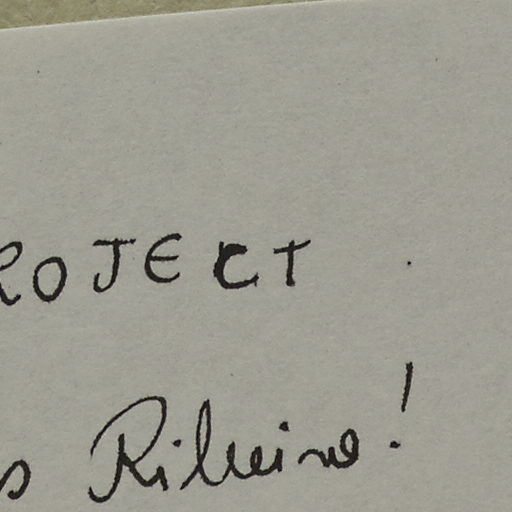 ROJECT .
s Ribeiro!